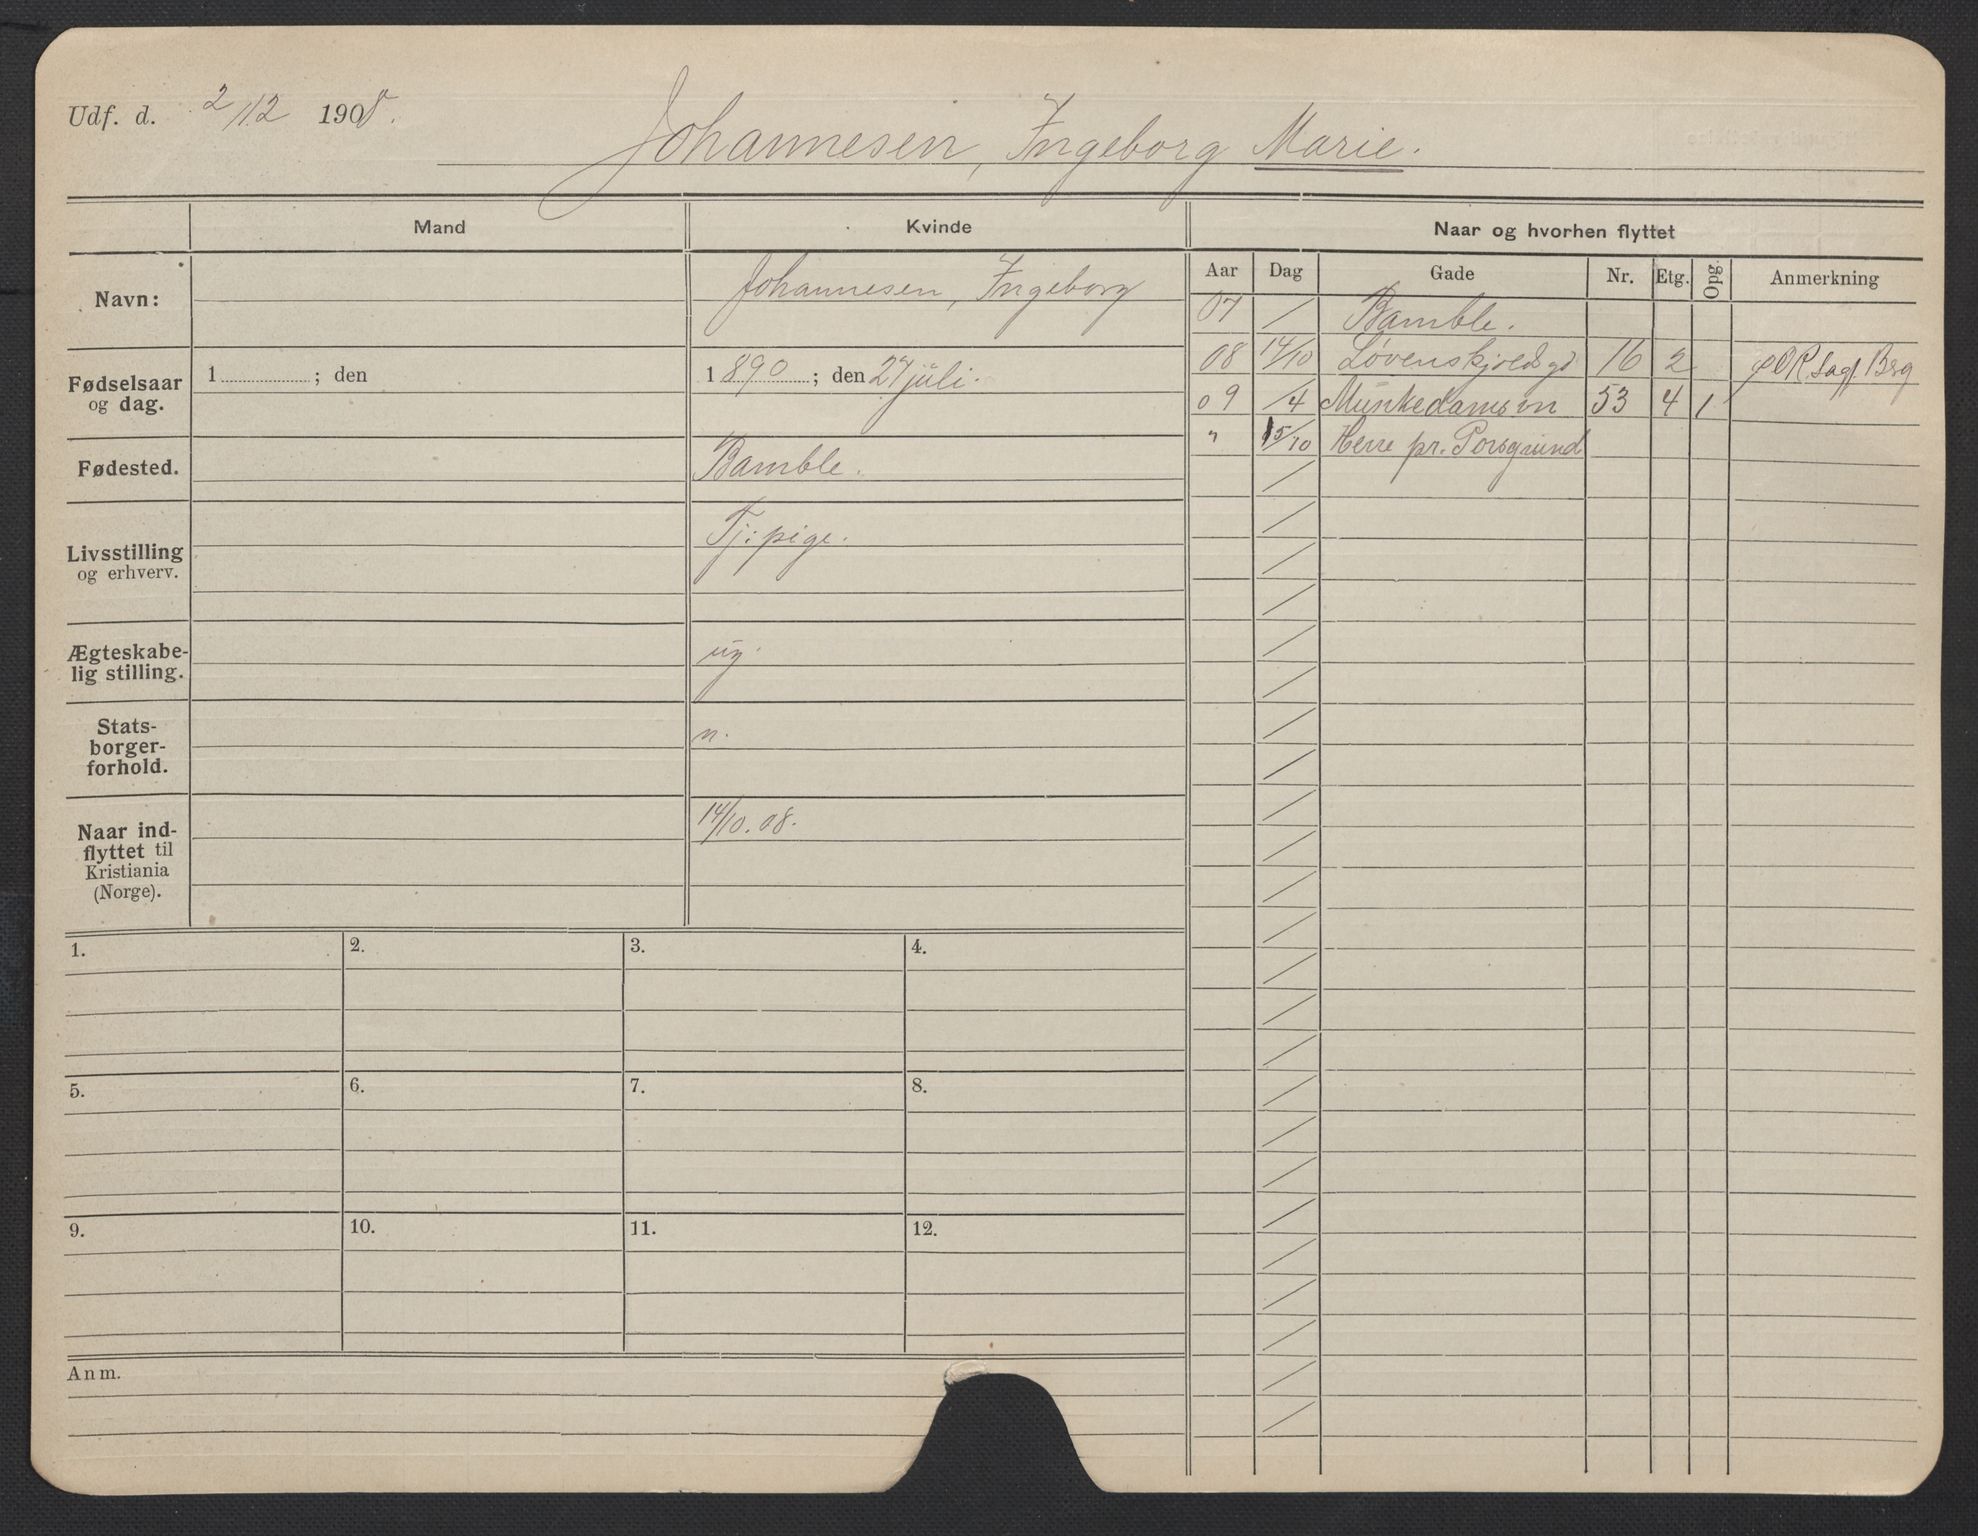 Udf. d. 2/12 1908.
Johannesen, Ingeborg Marie.
Mand
Kvinde
Navn:
Johannesen, Ingeborg
Fødselsaar og dag.
1 ; den
1890 ; den 27 juli.
Fødested.
Bamble.
Livsstilling og erhverv.
Tj: pige.
Ægteskabe-
lig stilling.
ug.
Stats-
borger-
forhold.
n.
Naar ind-
flyttet til
Kristiania
(Norge).
14/10. 08.
1. 2. 3. 4.
5. 6. 7. 8.
9. 10. 11. 12.
Anm.
Naar og hvorhen flyttet
Aar Dag Gade Nr. Etg. Opg. Anmerkning
07 / Bamble.
08 14/10 Løvenskjoldsgd 16 2 Berg
09 /4 Munkedamsvn 53 4 1
" 15/10 Herre pr. Porsgrund